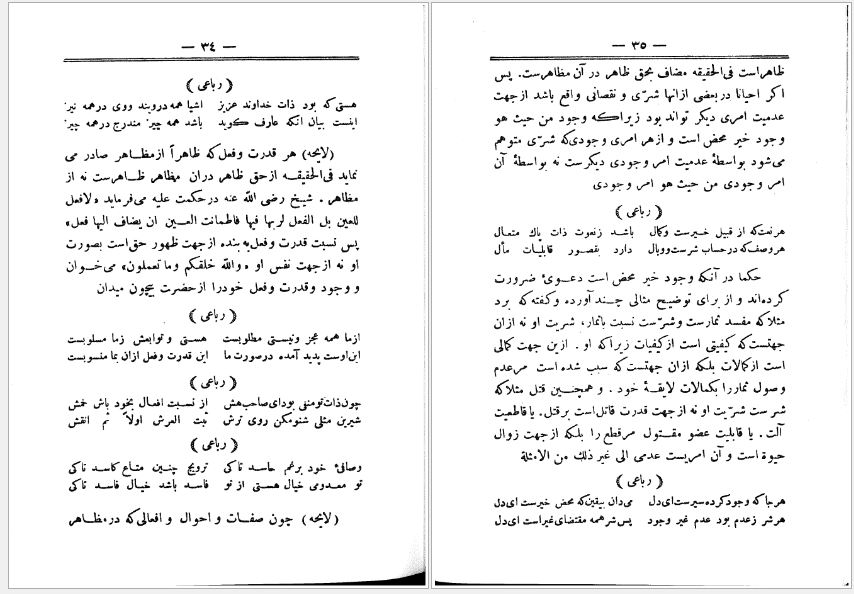 — ٣٤ —
( رباعی )
هستی که بود ذات خداوند عزیز اشیا همه دروبند ووی درهمه نیز
اینست بیان آنکه عارف کوید باشد همه چیز مندرج درهمه چیز
(لایحه) هر قدرت وفعل که ظاهراً ازمظاهر صادر می
نماید فی‌الحقیقه ازحق ظاهر دران مظاهر ظاهرست نه از
مظاهر . شیخ رضی الله عنه درحکمت علیه می‌فرماید «لافعل
للعین بل الفعل لربها فیها فاطمانت العین ان یضاف الیها فعل»
پس نسبت قدرت وفعل به بنده ازجهت ظهور حق است بصورت
او نه ازجهت نفس او «والله خلقکم وما تعملون» می‌خوان
و وجود وقدرت وفعل خودرا ازحضرت بیچون میدان
( رباعی )
ازما همه عجز ونیستی مطلوبست هستی وتوابعش زما مسلوبست
این اوست پدید آمده درصورت ما این قدرت وفعل ازان بما منسوبست
( رباعی )
چون ذات تومنفی بودای صاحب هش از نسبت افعال بخود باش خمش
شیرین مثلی شنومکن روی ترش ثبت العرش اولاً ثم انقش
( رباعی )
وصافیٔ خود برغم حاسد تاکی ترویج چنین متاع کاسد تاکی
تو معدومی خیال هستی از تو فاسد باشد خیال فاسد تاکی
(لایحه) چون صفات و احوال و افعالی‌که در مظاهر
— ٣٥ —
ظاهراست فی‌الحقیقه مضاف بحق ظاهر در آن مظاهرست. پس
اکر احیانا دربعضی ازانها شرّی و نقصانی واقع باشد ازجهت
عدمیت امری دیکر تواند بود زیراکه وجود من حیث هو
وجود خیر محض است و ازهر امری وجودی‌که شرّی متوهم
می‌شود بواسطهٔ عدمیت امر وجودی دیکرست نه بواسطهٔ آن
امر وجودی من حیث هو امر وجودی
( رباعی )
هرنعت‌که از قبیل خیرست وکمال باشد زنعوت ذات پاك متعال
هروصف‌که درحساب شرست ووبال دارد بقصور قابلیات مأل
حکما در آنکه وجود خیر محض است دعویٔ ضرورت
کرده‌اند و از برای توضیح مثالی چند آورده وکفته‌که برد
مثلاکه مفسد ثمارست وشرّست نسبت باثمار، شریت او نه ازان
جهتست‌که کیفیتی است ازکیفیات زیراکه او . ازین جهت کمالی
است ازکمالات بلکه ازان جهتست‌که سبب شده است مرعدم
وصول ثماررا بکمالات لایقهٔ خود . و همچنین قتل مثلاکه
شرست شرّیت او نه ازجهت قدرت قاتل‌است برقتل. یا قاطعیت
آلت. یا قابلیت عضو مقتول مرقطع را بلکه ازجهت زوال
حیوة است و آن امریست عدمی الی غیر ذلك من الامثلة
( رباعی )
هرجاکه وجود کرده سیرست ای‌دل می‌دان بیقین‌که محض خیرست ای‌دل
هرشر زعدم بود عدم غیر وجود پس شرهمه مقتضای غیراست ای‌دل